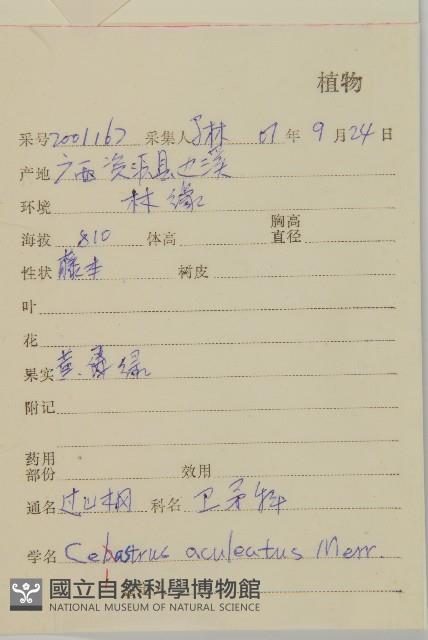 植物
采号 2001167 采集人 林 01 年 9 月 24 日
产地 广西资源县
环境 林缘
海拔 810 体高 胸高直径
性状 藤本 树皮
叶
花
果实 黄绿
附记
药用部份 效用
通名 过山枫 科名 卫矛科
学名 Celastrus aculeatus Merr.
國立自然科學博物館
NATIONAL MUSEUM OF NATURAL SCIENCE